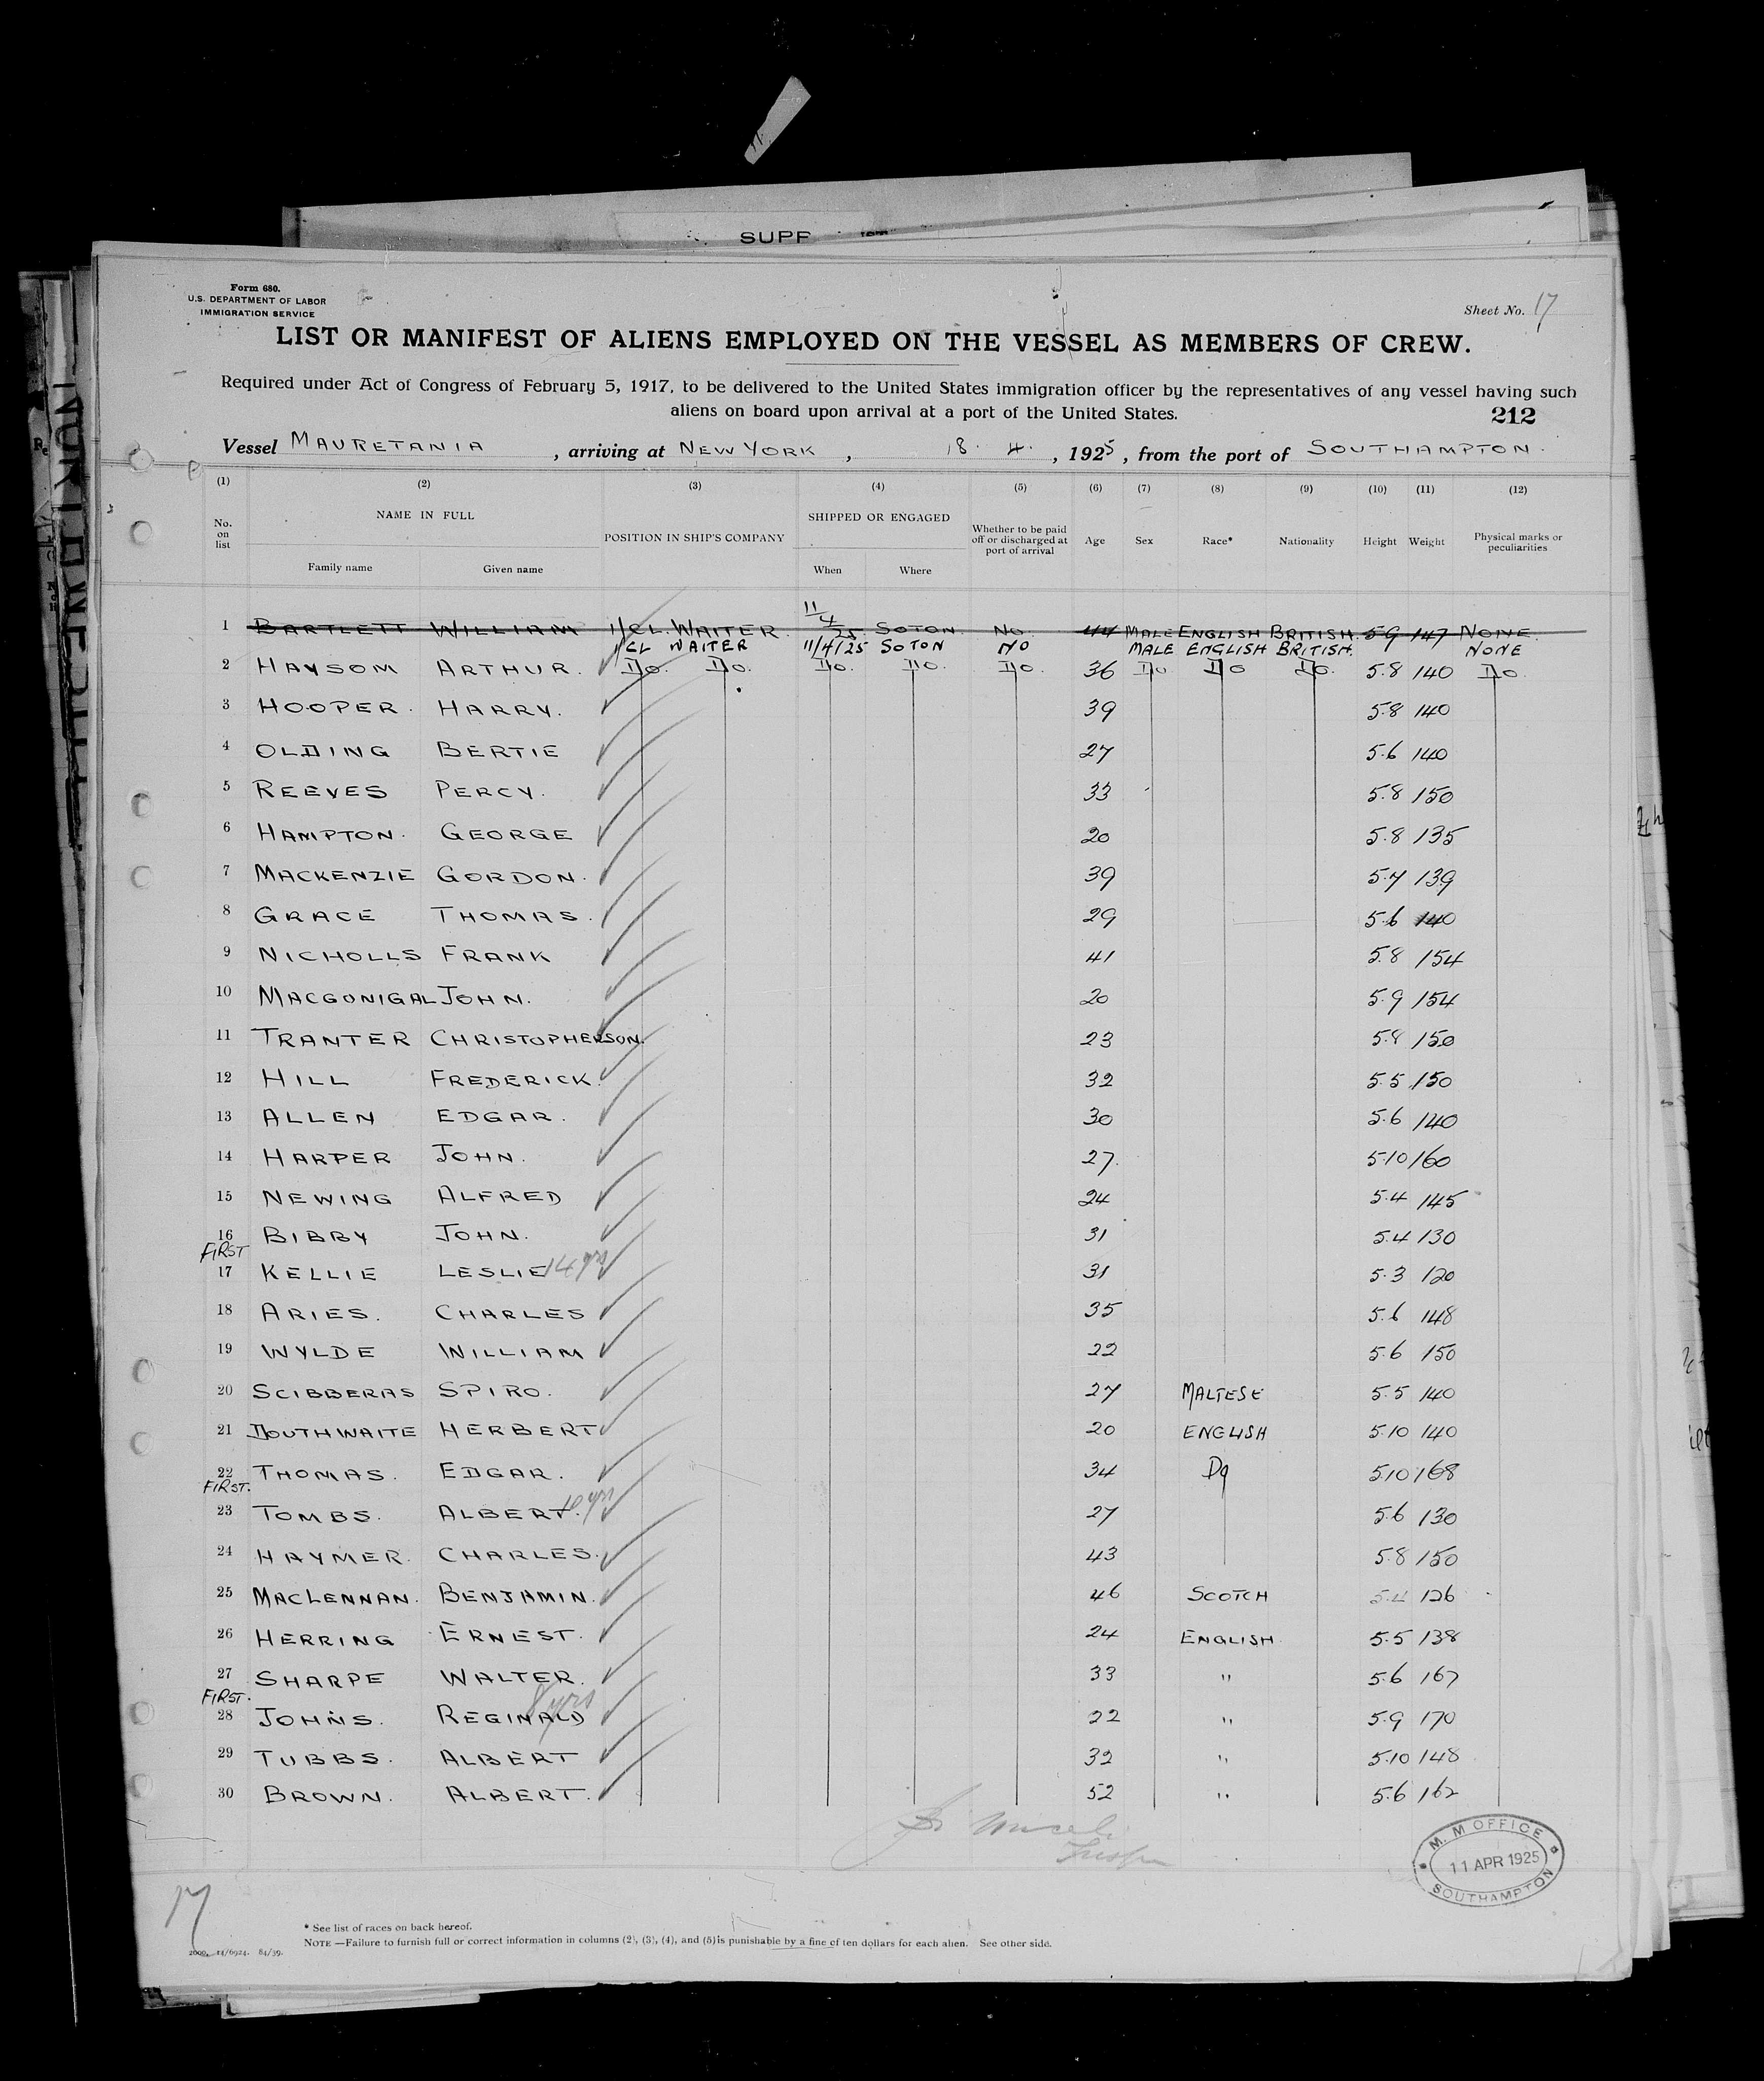 SUPP
Form 680.
U.S. DEPARTMENT OF LABOR
IMMIGRATION SERVICE
Sheet No. 17
LIST OR MANIFEST OF ALIENS EMPLOYED ON THE VESSEL AS MEMBERS OF CREW.
Required under Act of Congress of February 5, 1917, to be delivered to the United States immigration officer by the representatives of any vessel having such
aliens on board upon arrival at a port of the United States.
212
Vessel MAURETANIA , arriving at NEW YORK , 18 . 4 . , 1925 , from the port of SOUTHAMPTON .
(1) (2) (3) (4) (5) (6) (7) (8) (9) (10) (11) (12)
No. on list NAME IN FULL POSITION IN SHIP'S COMPANY SHIPPED OR ENGAGED Whether to be paid off or discharged at port of arrival Age Sex Race* Nationality Height Weight Physical marks or peculiarities
Family name Given name When Where
1 BARTLETT WILLIAM 1/CL. WAITER. 11/4/25. SOTON. NO. 44 MALE ENGLISH BRITISH. 5.9 147 NONE.
1/CL WAITER 11/4/25 SOTON NO MALE ENGLISH BRITISH. NONE
2 HAYSOM ARTHUR. Do. Do. Do. Do. Do. 36 Do Do Do. 5.8 140 Do.
3 HOOPER. HARRY. 39 5.8 140
4 OLDING BERTIE 27 5.6 140
5 REEVES PERCY. 33 5.8 150
6 HAMPTON. GEORGE 20 5.8 135
7 MACKENZIE GORDON. 39 5.7 139
8 GRACE THOMAS. 29 5.6 140
9 NICHOLLS FRANK 41 5.8 154
10 MACGONIGAL JOHN. 20 5.9 154
11 TRANTER CHRISTOPHERSON. 23 5.8 150
12 HILL FREDERICK. 32 5.5 150
13 ALLEN EDGAR. 30 5.6 140
14 HARPER JOHN. 27. 5.10 160
15 NEWING ALFRED 24 5.4 145
16 BIBBY JOHN. 31 5.4 130
FIRST
17 KELLIE LESLIE 14 yrs 31 5.3 120
18 ARIES. CHARLES 35 5.6 148
19 WYLDE WILLIAM 22 5.6 150
20 SCIBBERAS SPIRO. 27 MALTESE 5.5 140
21 DOUTHWAITE HERBERT 20 ENGLISH 5.10 140
22 THOMAS. EDGAR. 34 Do 5.10 168
FIRST.
23 TOMBS. ALBERT. 10 yrs 27 5.6 130
24 HAYMER. CHARLES. 43 5.8 150
25 MACLENNAN. BENJAMIN. 46 SCOTCH 5.4 126
26 HERRING ERNEST. 24 ENGLISH. 5.5 138
27 SHARPE WALTER. 33 " 5.6 167
FIRST. 8 yrs
28 JOHNS. REGINALD 22 " 5.9 170
29 TUBBS. ALBERT 32 " 5.10 148
30 BROWN. ALBERT. 52 " 5.6 162
M. M OFFICE
11 APR 1925
SOUTHAMPTON
17
* See list of races on back hereof.
NOTE —Failure to furnish full or correct information in columns (2), (3), (4), and (5) is punishable by a fine of ten dollars for each alien. See other side.
2000. 14/6924. 84/39.